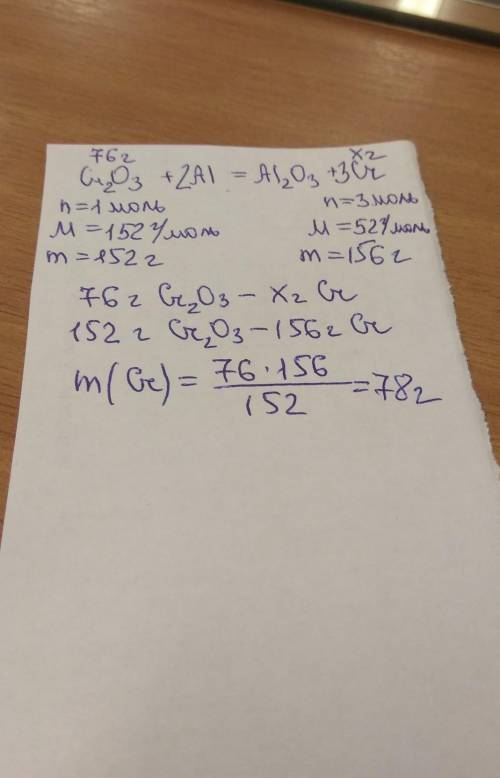 76г хг
Cr₂O₃ + 2Al = Al₂O₃ + 3Cr
n = 1 моль n = 3 моль
M = 152 г/моль M = 52 г/моль
m = 152 г m = 156 г
76 г Cr₂O₃ – х г Cr
152 г Cr₂O₃ – 156 г Cr
m(Cr) = 76 · 156 / 152 = 78 г